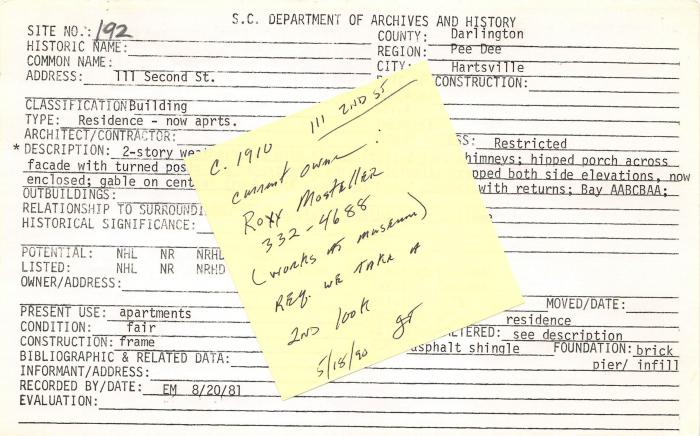 S.C. DEPARTMENT OF ARCHIVES AND HISTORY
SITE NO.: 192
COUNTY: Darlington
HISTORIC NAME:
REGION: Pee Dee
COMMON NAME:
CITY: Hartsville
ADDRESS: 111 Second St.
CONSTRUCTION:
CLASSIFICATION Building
TYPE: Residence - now aprts.
ARCHITECT/CONTRACTOR:
SS: Restricted
* DESCRIPTION: 2-story
himneys; hipped porch across
facade with turned pos
pped both side elevations, now
enclosed; gable on cent
with returns; Bay AABCBAA;
OUTBUILDINGS:
RELATIONSHIP TO SURROUNDI
HISTORICAL SIGNIFICANCE:
POTENTIAL: NHL NR NRHD
LISTED: NHL NR NRHD
OWNER/ADDRESS:
MOVED/DATE:
PRESENT USE: apartments
residence
CONDITION: fair
LTERED: see description
CONSTRUCTION: frame
asphalt shingle FOUNDATION: brick
BIBLIOGRAPHIC & RELATED DATA:
pier/ infill
INFORMANT/ADDRESS:
RECORDED BY/DATE: EM 8/20/81
EVALUATION:
111 2ND ST
C. 1910
current owner:
Roxx Mosteller
332-4688
(works at museum)
Req. we take a
2nd look
5/18/90 JT